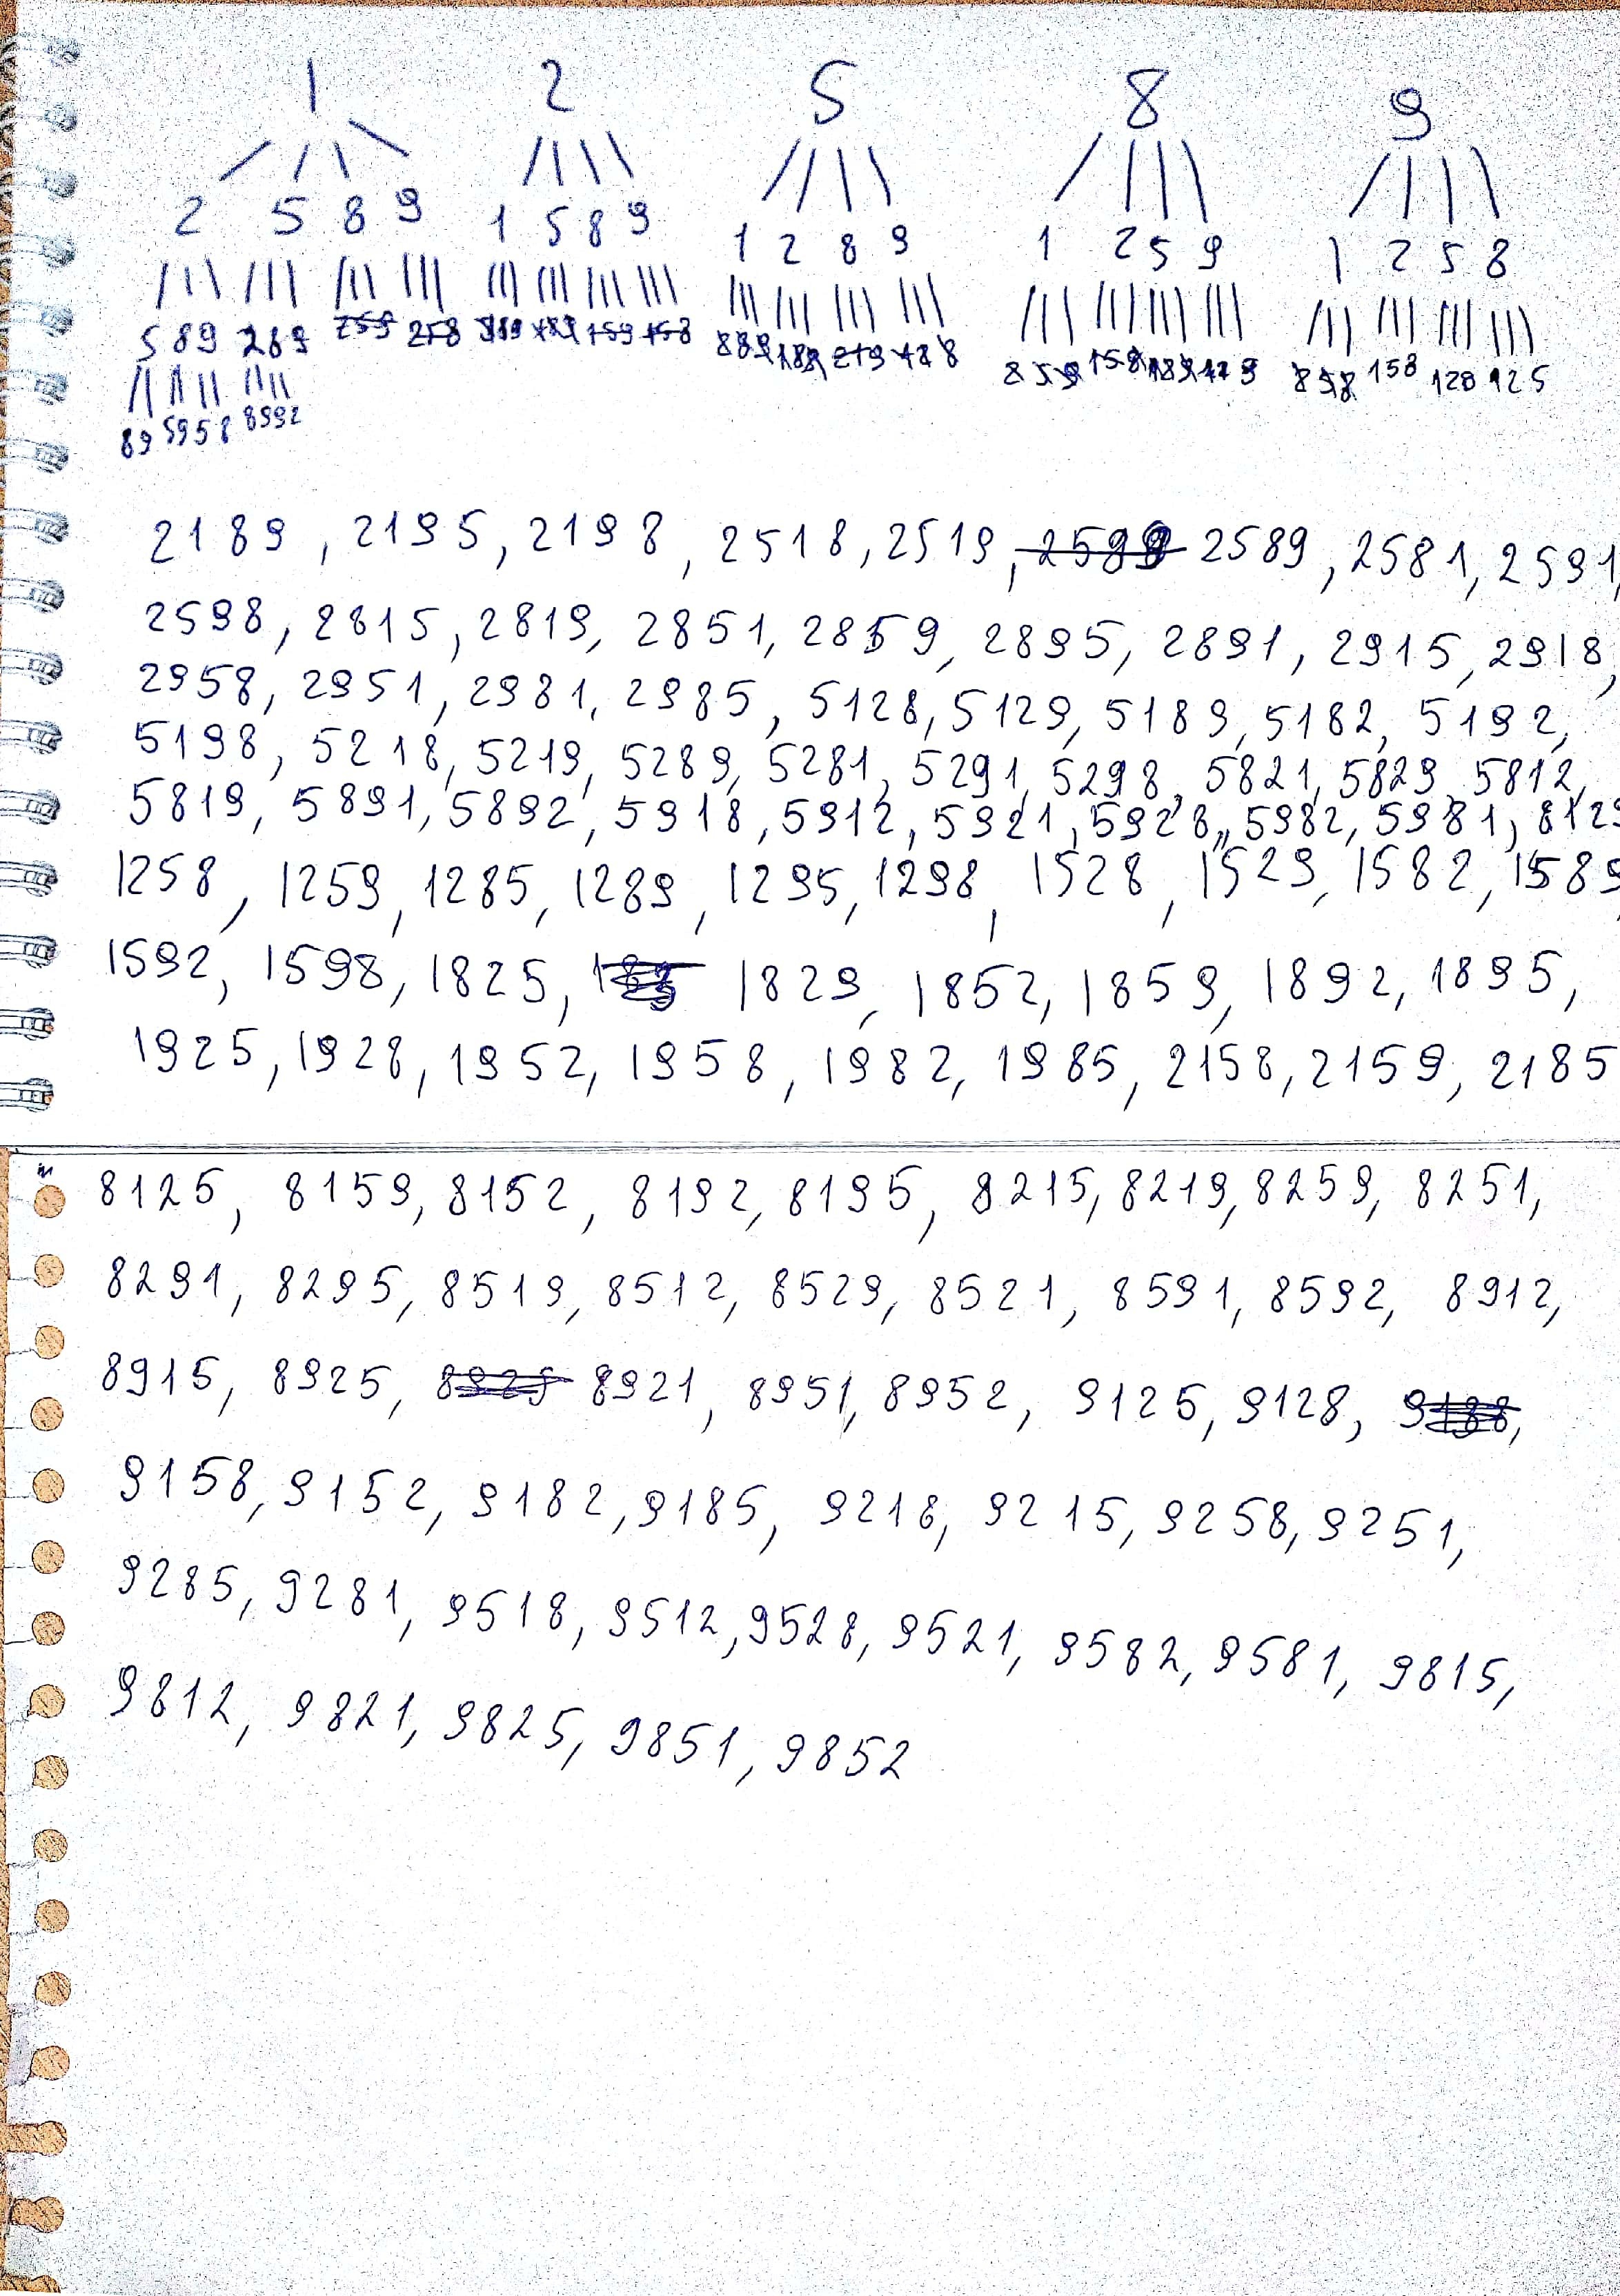 1 2 5 8 9
2 5 8 9 1 5 8 9 1 2 8 9 1 2 5 9 1 2 5 8
5 8 9 2 8 9 259 258 189 159 158 189 219 128 859 159 129 158 128 125
89 59 58 89 92
2189, 2195, 2198, 2518, 2519, 2589, 2581, 2591,
2598, 2815, 2819, 2851, 2859, 2895, 2891, 2915, 2918,
2958, 2951, 2981, 2985, 5128, 5129, 5189, 5182, 5192,
5198, 5218, 5219, 5289, 5281, 5291, 5298, 5821, 5829, 5812,
5819, 5891, 5892, 5918, 5912, 5921, 5928, 5982, 5981, 8129
1258, 1259, 1285, 1289, 1295, 1298, 1528, 1529, 1582, 1589,
1592, 1598, 1825, 1829, 1852, 1859, 1892, 1895,
1925, 1928, 1952, 1958, 1982, 1985, 2158, 2159, 2185
8125, 8159, 8152, 8192, 8195, 8215, 8219, 8259, 8251,
8291, 8295, 8519, 8512, 8529, 8521, 8591, 8592, 8912,
8915, 8925, 8921, 8951, 8952, 9125, 9128,
9158, 9152, 9182, 9185, 9218, 9215, 9258, 9251,
9285, 9281, 9518, 9512, 9528, 9521, 9582, 9581, 9815,
9812, 9821, 9825, 9851, 9852